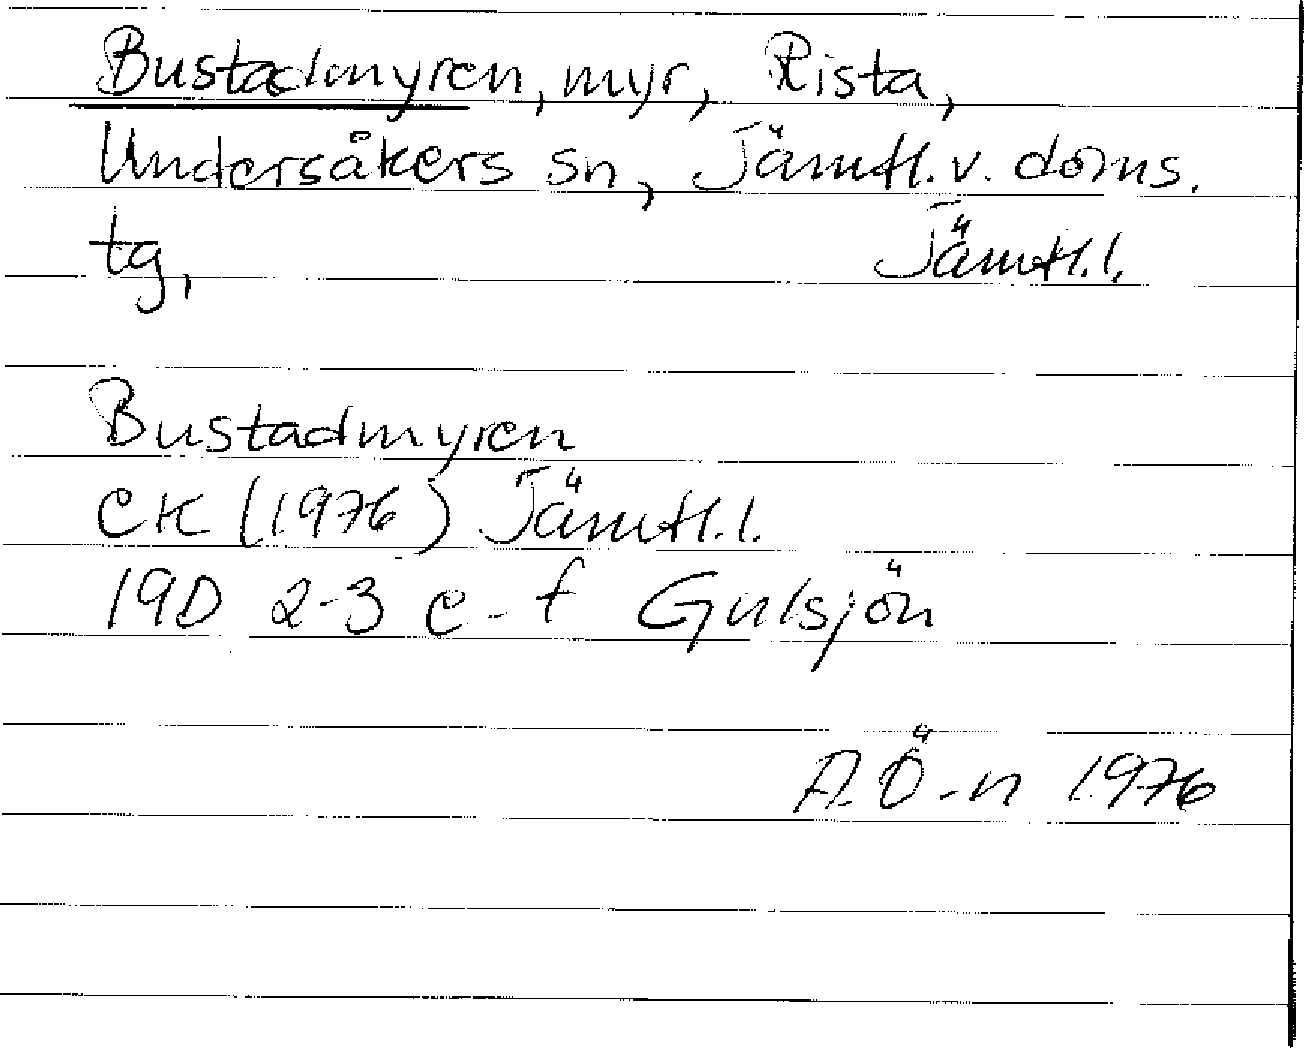 Bustadmyren, myr, Rista,
Undersåkers sn, Jämtl. v. doms.
tg, Jämtl. l.
Bustadmyren
EK (1976) Jämtl. l.
19D 2-3 e-f Gulsjön
A. Ö-n 1976